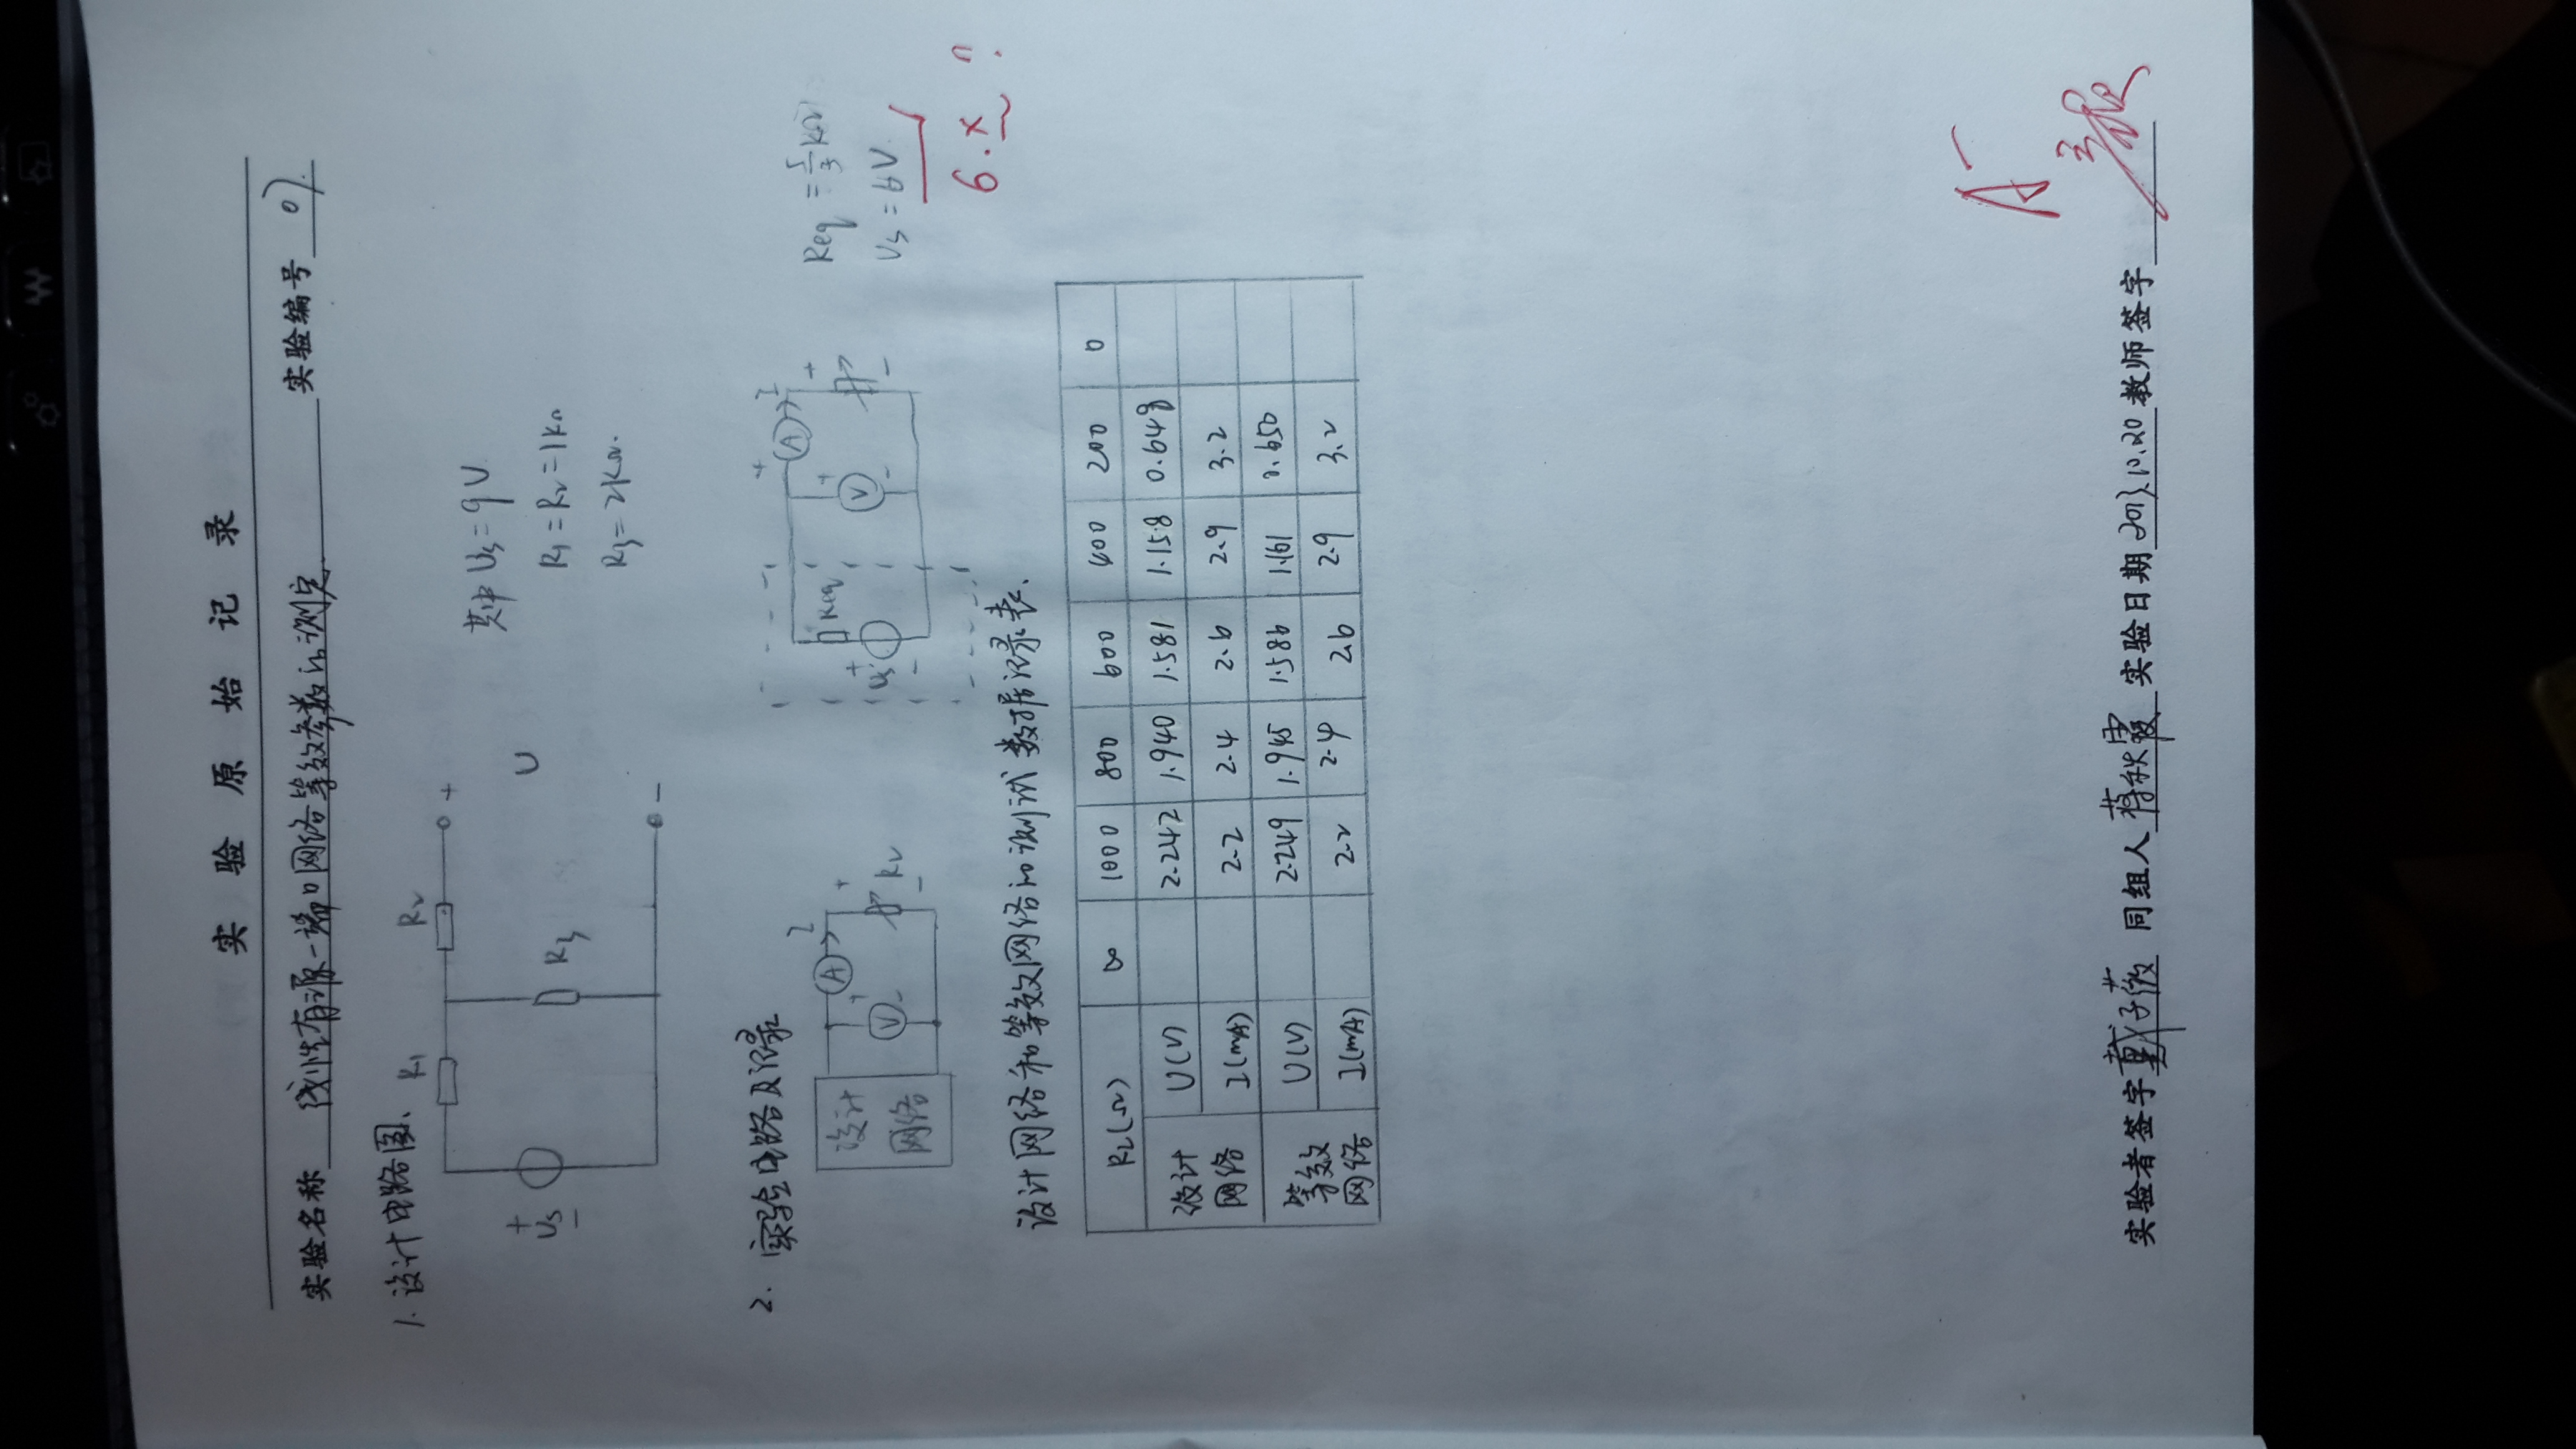 实验原始记录
实验名称 线性有源一端口网络等效参数的测定. 实验编号 07.
1. 设计电路图、
R1 R2
+
Us
-
R3
+
U
-
其中 Us = 9V.
R1 = R2 = 1kΩ
R3 = 2kΩ.
2. 实验电路及记录
设计
网络
A I
V + -
+ RL -
Req
+ Us -
A + I
V + -
+ -
Req = 5/3 kΩ
Us = 6V
6.x ?
设计网络和等效网络的测试数据记录表.
RL(Ω) ∞ 1000 800 600 400 200 0
设计网络 U(V) 2.242 1.940 1.581 1.158 0.648
I(mA) 2.2 2.4 2.6 2.9 3.2
等效网络 U(V) 2.249 1.945 1.586 1.161 0.650
I(mA) 2.2 2.4 2.6 2.9 3.2
A-
实验者签字 戴子薇 同组人 蒋秋霞 实验日期 2013.10.20 教师签字